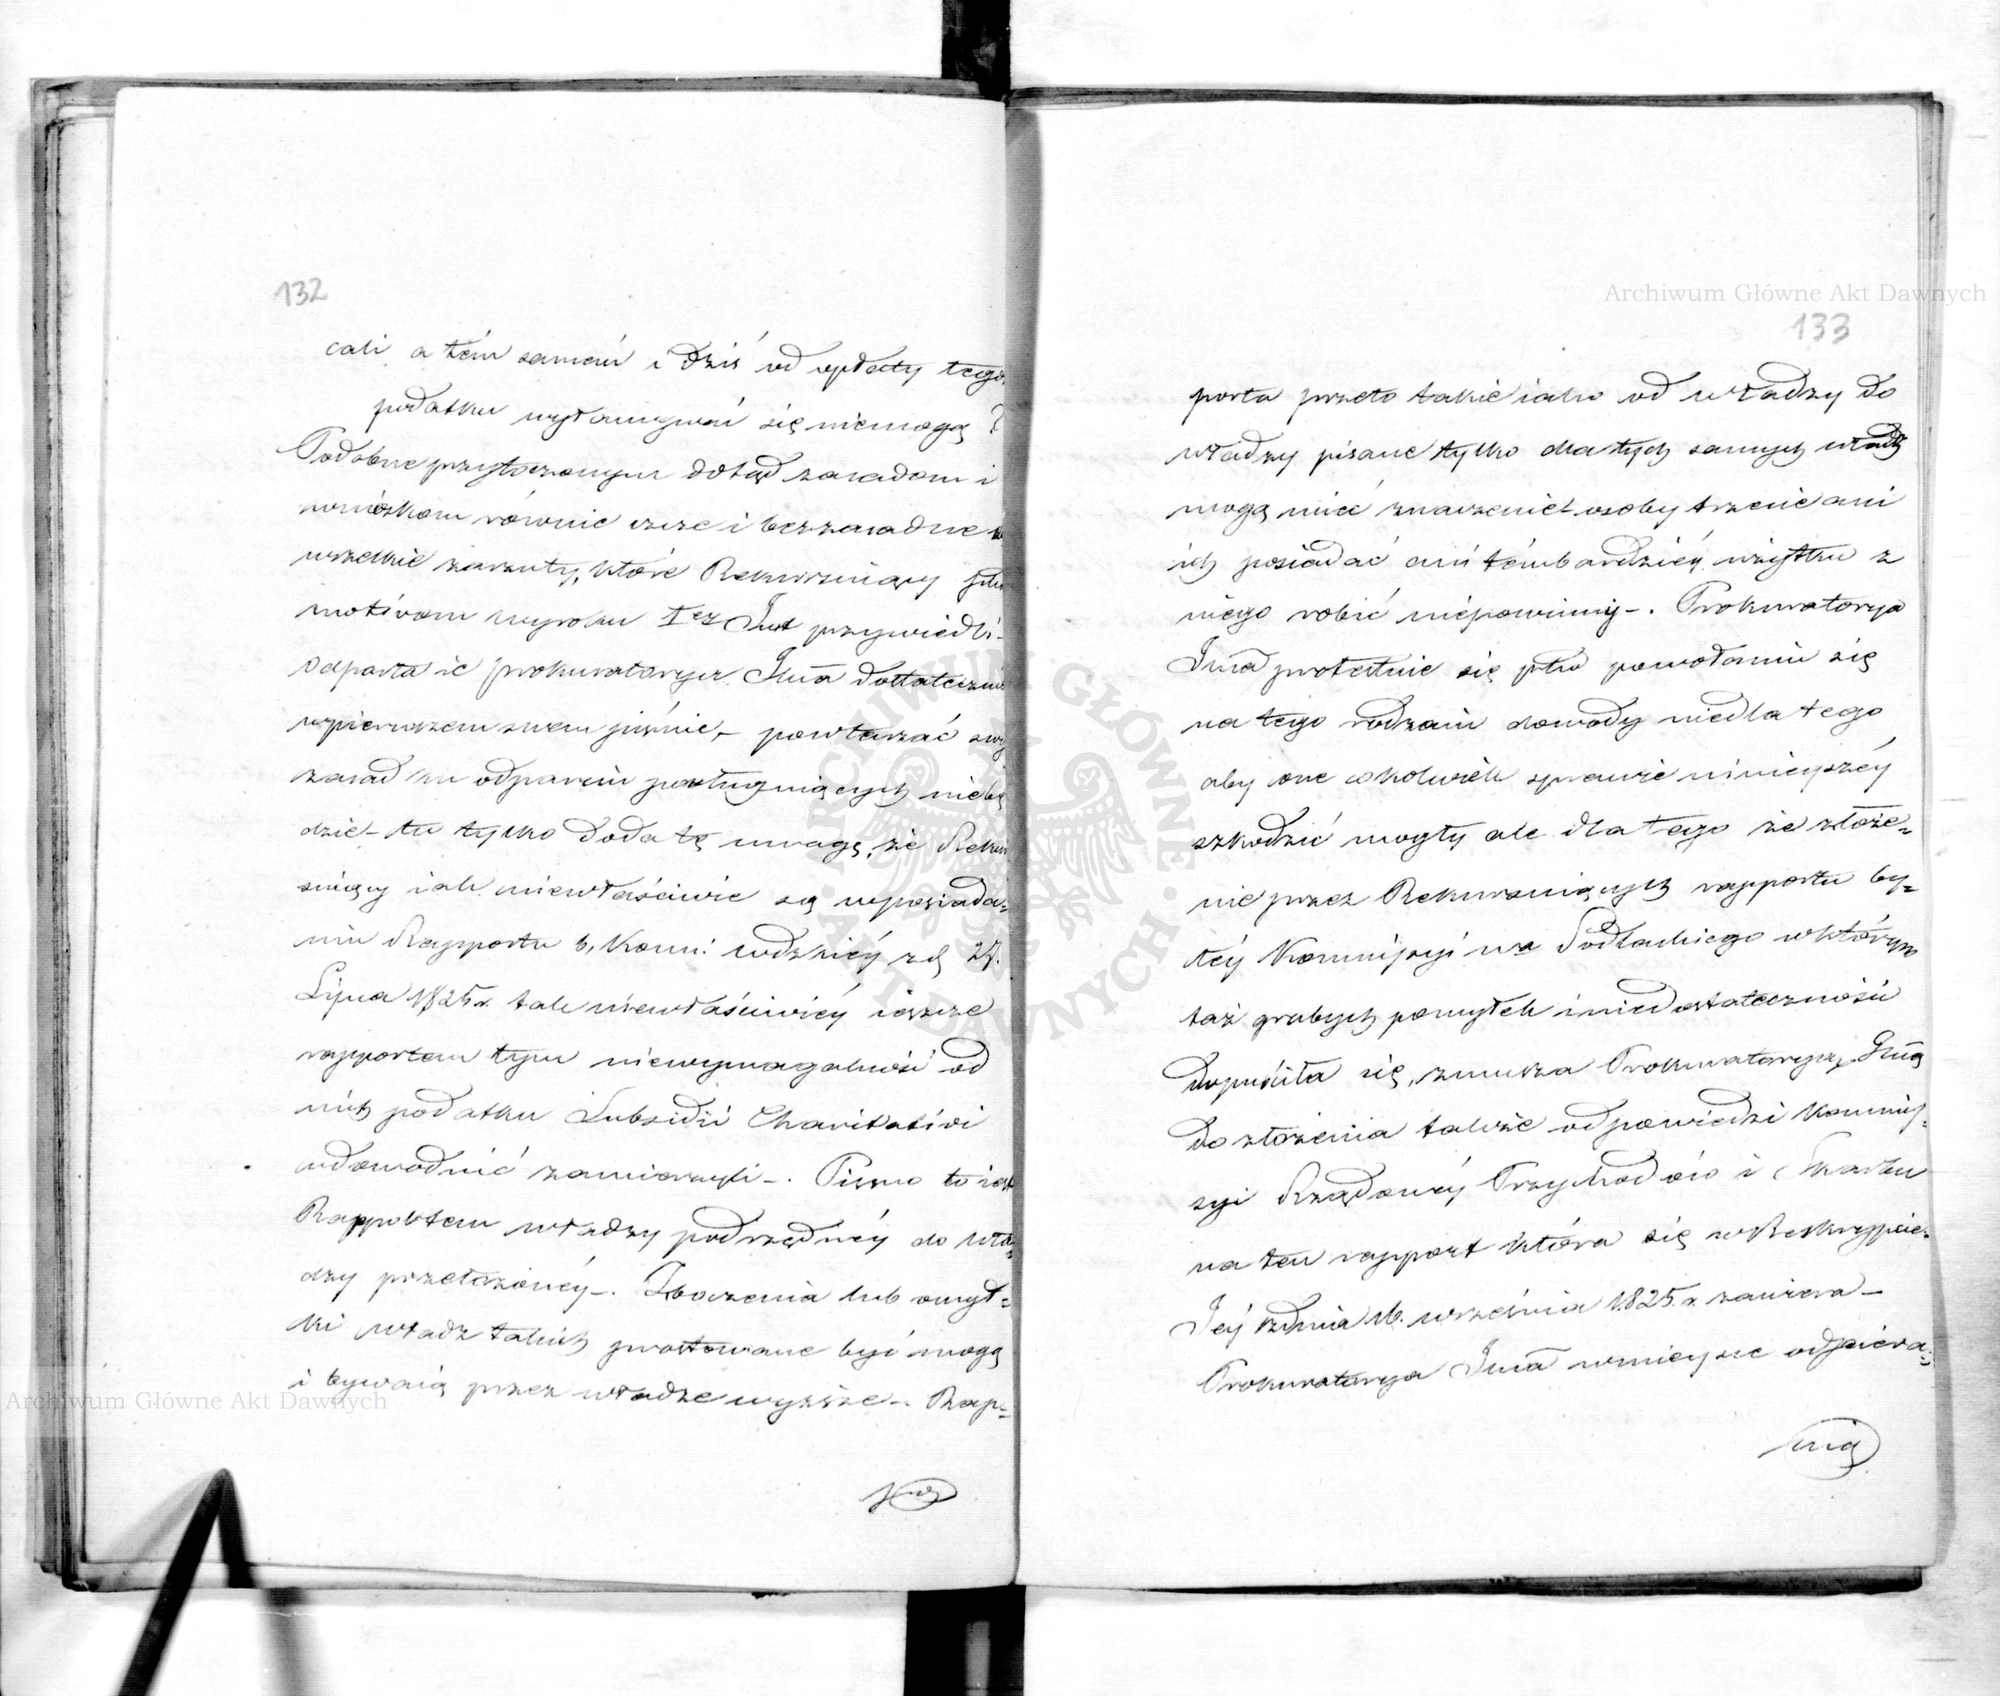 132
cali a tém samém i dziś od opłaty tego
podatku wyłamywać się niemogą?
Podobne przytoczonym dotąd zasadom i
wnioskom równie czcze i bezzasadne są
wszelkie zarzuty, które Rekursuiący ptko
motivom wyroku Iej Inst przywiedli-
odparła ie prokuratorya Jlna dostatecznie
wpierwszem swem piśmie, - powtarzać swych
zasad ku odparciu posługuiących niebę
dzie - tu tylko doda tę uwagę, że Rekur
suiący iak niewłaściwie są wposiada=
niu Rapportu b. Komi: wdzkiéy z d 27.
Lipca 1825 r. tak niewłaściwiéy ieszcze
rapportem tym niewymagalność od
nich podatku Subsidii Charitativi
udowodnić zamierzyli -. Pismo to iest
Rapportem władzy podrzędnéy do wła=
dzy przełożonéy -. Zboczenia lub omył=
ki władz takich prostowane być mogą
i bywaią przez władze wyższe -. Rap=
133
porta przeto takie iako od władzy do
władzy pisane tylko dla tych samych władz
mogą mieć znaczenie osoby trzecie ani
ich posiadać ani témbardziéy użytku z
niego robić niepowinny -. Prokuratorya
Jlna protestuie się ptko powołaniu się
na tego rodzaiu dowody niedla tego
aby one cokolwiek sprawie ninieyszéy
szkodzić mogły ale dla tego że złoże=
nie przez Rekursuiących rapportu by=
łéy Kommissyi wa Podlaskiego wktórym
taż grubych pomyłek i niedostateczności
dopuściła się, zmusza Prokuratoryą Jlną
do złożenia także odpowiedzi Kommis=
syi Rządowéy Przychodów i Skarbu
na ten rapport która się w Reskrypcie
Jéy z dnia 16. września 1825. r. zawiera -
Prokuratorya Jlna wmieysce odpiera=
nia